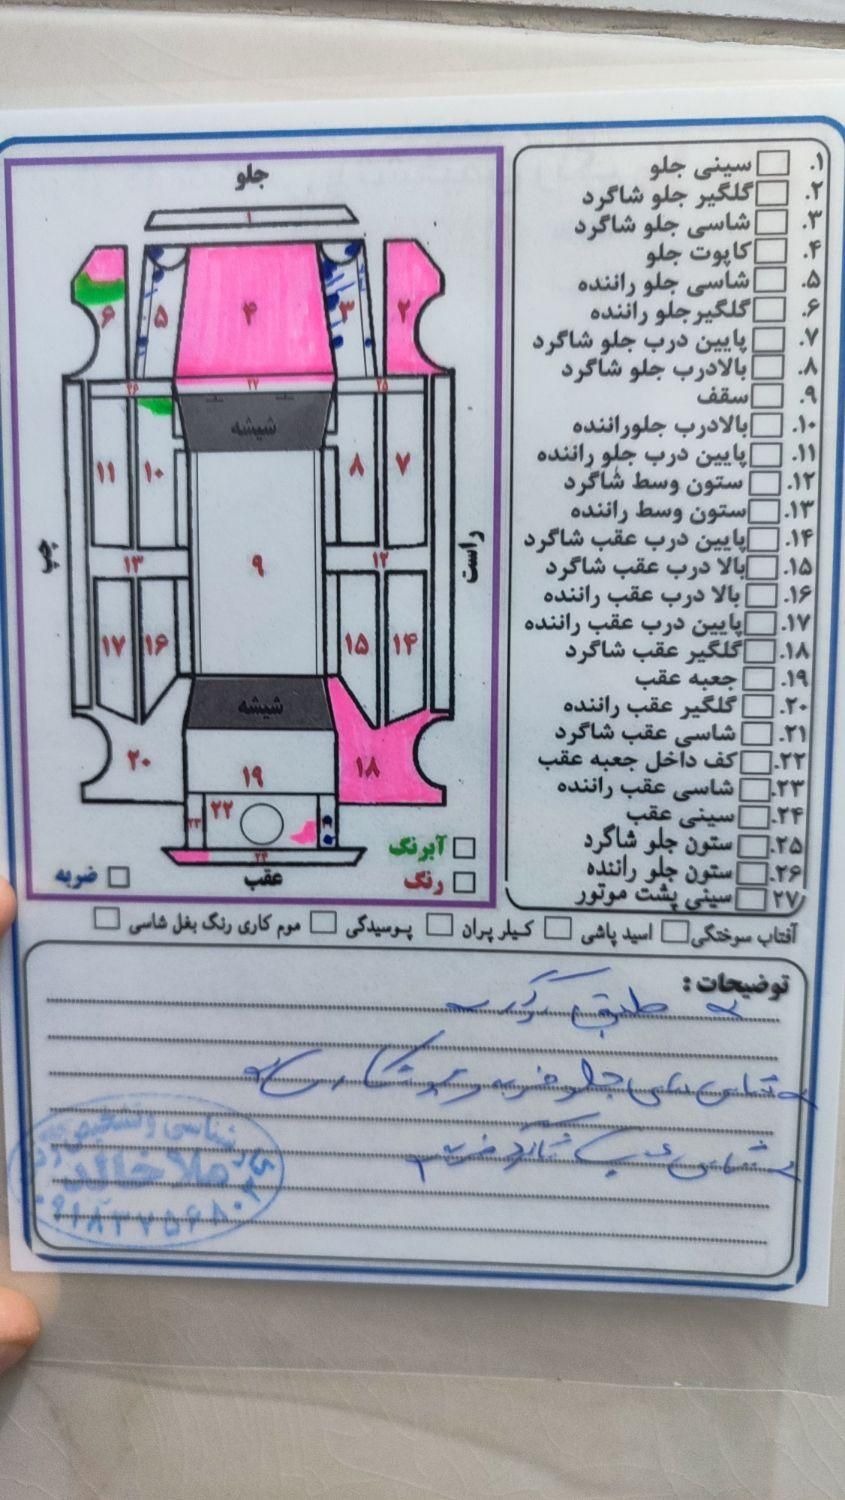 جلو
۱
۶
۵
۴
۳
۲
۲۶
۲۷
۲۵
شیشه
۱۱
۱۰
۸
۷
چپ
راست
۱۳
۹
۱۲
۱۷
۱۶
۱۵
۱۴
شیشه
۲۰
۱۹
۱۸
۲۳
۲۲
۲۴
عقب
آبرنگ
رنگ
ضربه
۱. سینی جلو
۲. گلگیر جلو شاگرد
۳. شاسی جلو شاگرد
۴. کاپوت جلو
۵. شاسی جلو راننده
۶. گلگیرجلو راننده
۷. پایین درب جلو شاگرد
۸. بالادرب جلو شاگرد
۹. سقف
۱۰. بالادرب جلوراننده
۱۱. پایین درب جلو راننده
۱۲. ستون وسط شاگرد
۱۳. ستون وسط راننده
۱۴. پایین درب عقب شاگرد
۱۵. بالا درب عقب شاگرد
۱۶. بالا درب عقب راننده
۱۷. پایین درب عقب راننده
۱۸. گلگیر عقب شاگرد
۱۹. جعبه عقب
۲۰. گلگیر عقب راننده
۲۱. شاسی عقب شاگرد
۲۲. کف داخل جعبه عقب
۲۳. شاسی عقب راننده
۲۴. سینی عقب
۲۵. ستون جلو شاگرد
۲۶. ستون جلو راننده
۲۷ سینی پشت موتور
آفتاب سوختگی اسید پاشی کیلر پران پوسیدگی موم کاری رنگ بغل شاسی
توضیحات :
طبق
شاسی های جلو ضربه و
شاسی عقب شاگرد ضربه
کارشناسی و تشخیص رنگ
ملا خالد